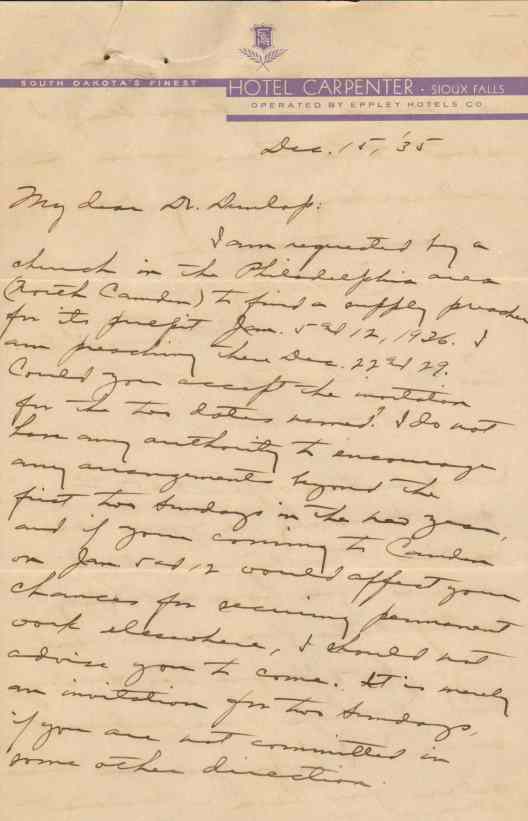 SOUTH DAKOTA'S FINEST
HOTEL CARPENTER · SIOUX FALLS
OPERATED BY EPPLEY HOTELS CO.
Dec. 15, '35
My dear Dr. Dunlap:
I am requested by a
church in the Philadelphia area
(North Camden) to find a supply preacher
for its pulpit Jan. 5 and 12, 1936. I
am preaching there Dec. 22 and 29.
Could you accept the invitation
for the two dates named? I do not
have any authority to encourage
any arrangements beyond the
first two Sundays in the new year,
and if your coming to Camden
on Jan 5 and 12 would affect your
chances for securing permanent
work elsewhere, I should not
advise you to come. It is merely
an invitation for two Sundays,
if you are not committed in
some other direction.